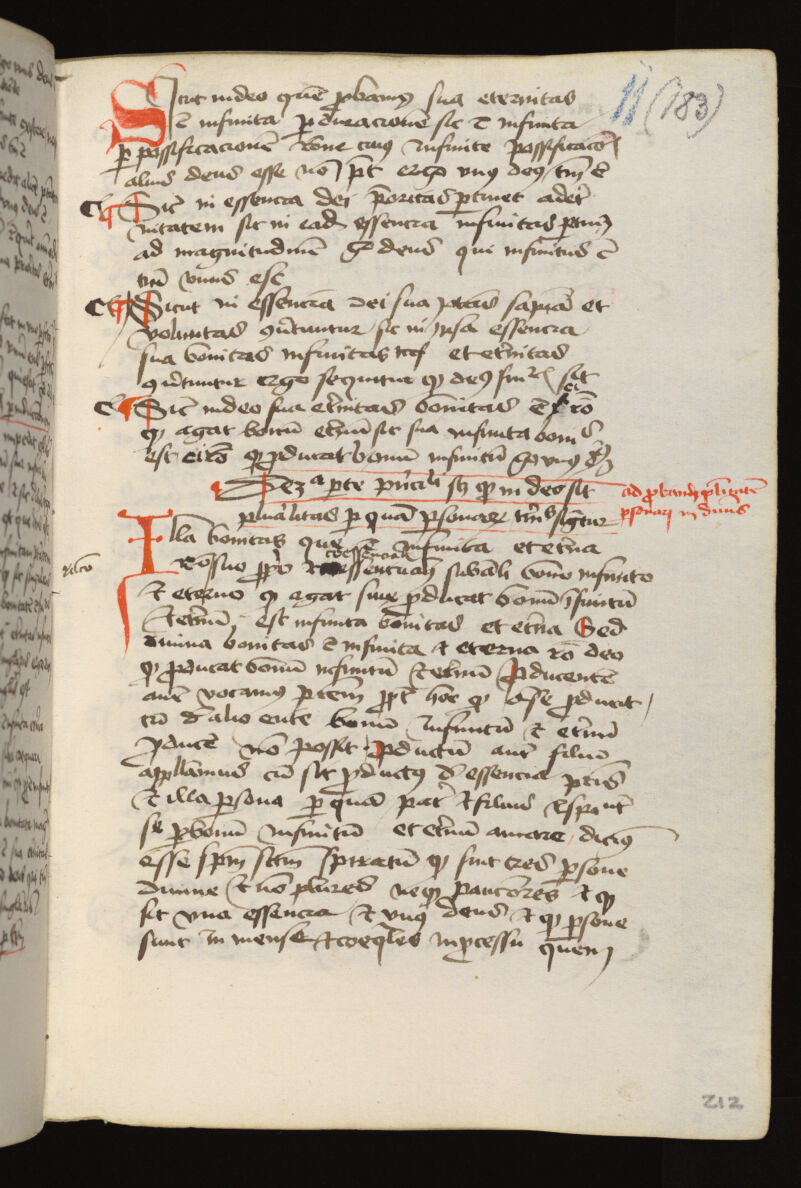 11 (183)
Sicut in deo quem probamus sua eternitas
est infinita per duracionem sic est infinita
per possificacionem racione cuius infinite possificacionis
alius deus esse non potest ergo unus deus tantum est
Sicut in essencia dei prioritas pertinet ad eter
nitatem sic in eadem essencia infinitas pertinet
ad magnitudinem ergo deus qui infinitus est
tantum unus est
Sicut in essencia dei sua potestas sapiencia et
voluntas convertuntur sic in ipsa essencia
sua bonitas infinitas et eternitas
convertuntur ergo sequitur quod deus sit
Sicut in deo sua eternitas bonitas est ei racio
quod agat bonum eternum sic sua infinita bonitas
est ei racio quod producat bonum infinitum ergo unus deus
De 2a parte principali scilicet quod in deo sit
pluralitas per quam personarum trinitas signetur
ad probandum pluralitatem
personarum in divinis
Illa bonitas que est infinita et eterna
racio
Racio suo proprio coessenciali substanciali bono infinito
et eterno quod agat sive producat bonum infinitum
et eternum est infinita bonitas et eterna Sed
divina bonitas est infinita et eterna racio deo
quod producat bonum infinitum et eternum Producentem
autem vocamus patrem propter hoc quod de se producit
cum de alio ente bonum infinitum et eternum
producere non possit Productum autem filium
appellamus cum sit productus de essencia patris
et illa persona per quam pater et filius
se per bonum infinitum et eternum amare dicimus
esse spiritum sanctum spiratum quod sint tres persone
divine et non plures neque pauciores et quod
sit una essencia et unus deus et quod persone
sunt in mense et coequales in processu quem
212